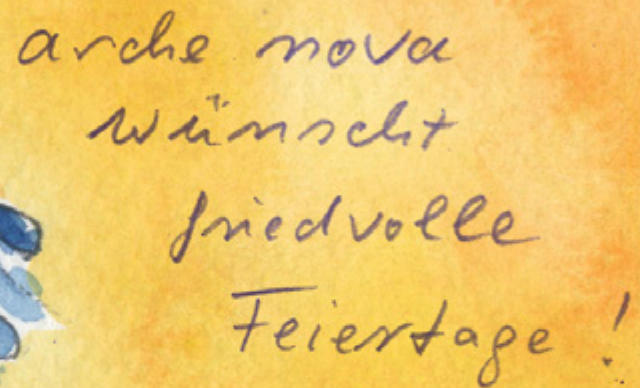 arche nova
wünscht
friedvolle
Feiertage !